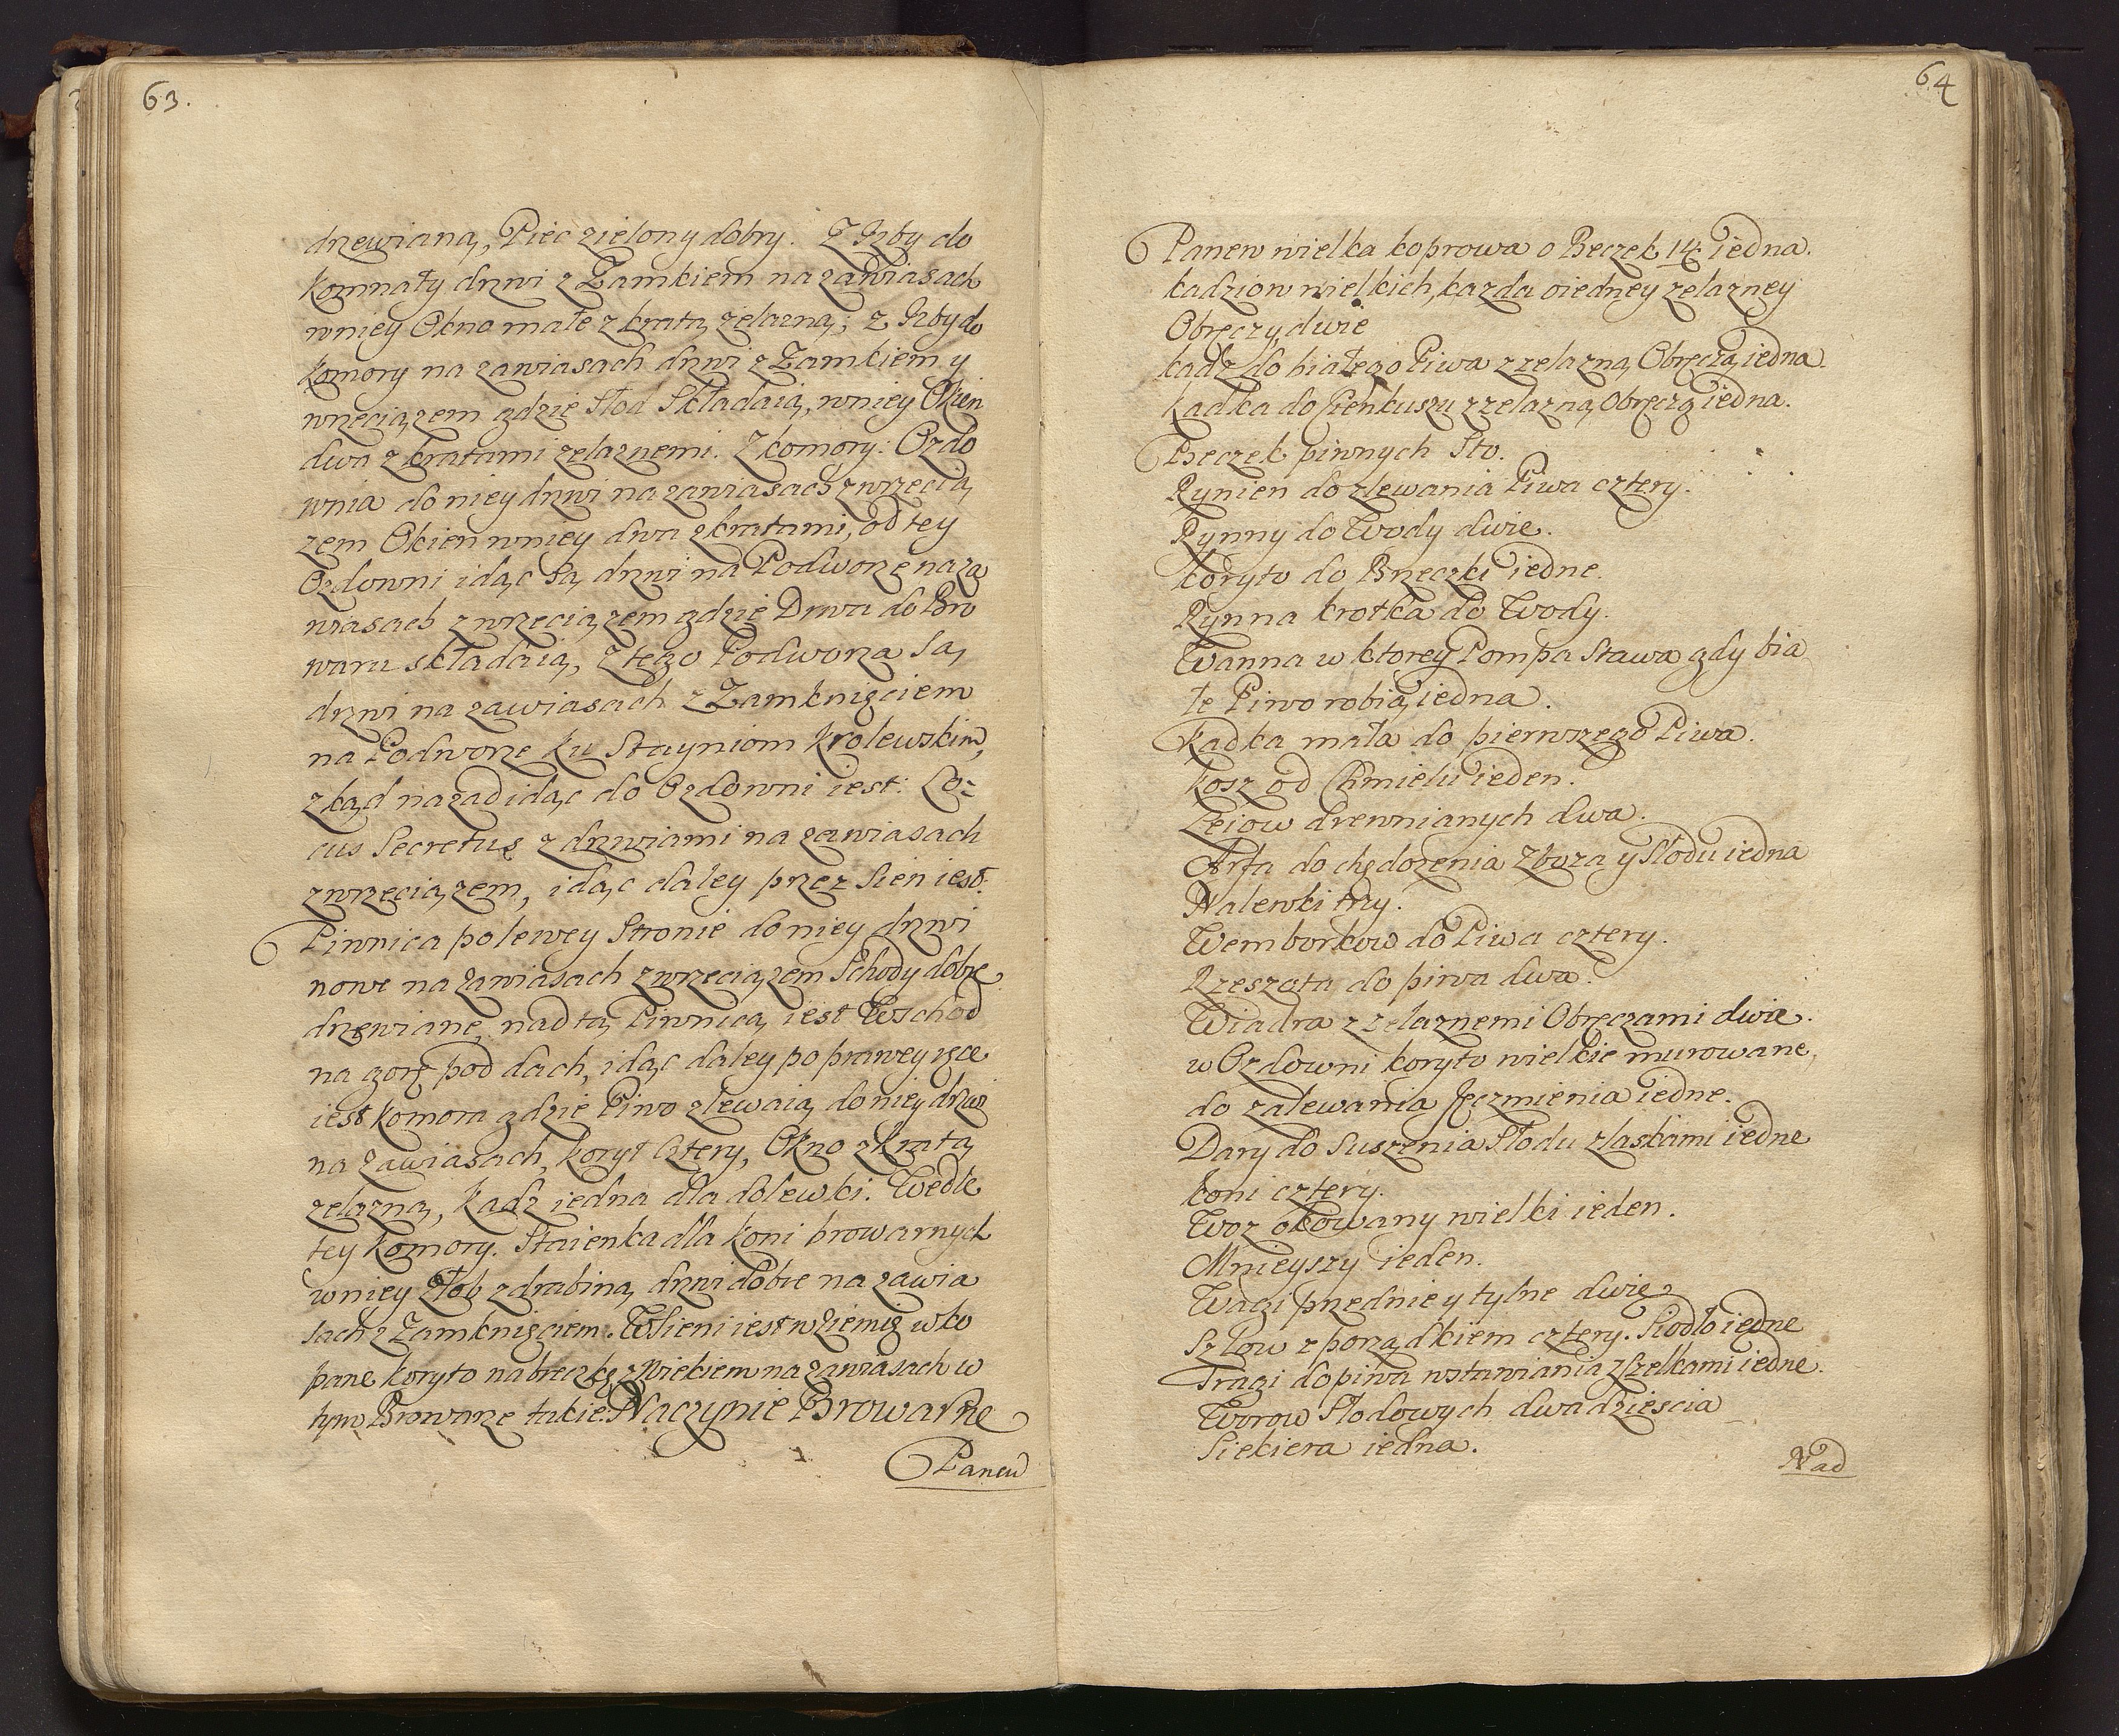 63.
drzewianą, Piec zielony dobry. Z Izby do
Komnaty drzwi z Zamkiem na zawiasach
wniey Okno małe z kratą żelazną; z Izby do
Komory na zawiasach drzwi z Zamkiem y
wrzeciązem gdzie Słod Składaią, wniey Okien
dwa z kratami zelaznemi. Z komory: Ozdo
wnia do niey drzwi na zawiasach z wrzecią
zem Okien wniey dwa z kratami, od tey
Ozdowni idąc są drzwi na Podworze na za
wiasach z wrzeciązem gdzie Drwa do Bro
waru składaią, z tego Podworza są
drzwi na zawiasach z Zamknięciem
na Podworze ku Stayniom Krolewskim,
zkąd nazad idąc do Ozdowni iest: Lo=
cus Secretus z drzwiami na zawiasach
z wrzeciązem, idąc daley przez Sien iest.
Piwnica po lewey Stronie do niey drzwi
nowe na zawiasach z wrzeciązem Schody dobre
drzewiane, nad tą Piwnicą iest Wschod
na gorę pod dach, idąc daley po prawey ręce
iest Komora gdzie Piwo zlewaią do niey drzwi
na zawiasach, Koryt cztery, Okno z kratą
zelazną, Kadz iedna dla dolewki. Wedle
tey Komory. Staienka dla Koni browarnych
w niey Złob z drabiną, drzwi dobre na zawia
sach z Zamknięciem. W Sieni iest w Ziemię wko
pane Koryto na breczkę z Wiekiem na zawiasach w
tym Browarze takie. Naczynie Browarne
Panew
64
Panew wielka koprowa o Beczek 14. iedna.
kadziow wielkich, kazda oiedney zelazney
Obręczy, dwie
kadz do białego Piwa z zelazną Obręczą iedna.
Kadka do Sienkuszu z zelazną Obręczą iedna.
Beczek piwnych Sto.
Rynien do zlewania Piwa cztery.
Rynny do Wody dwie.
Koryto do Brzeczki iedne.
Rynna krotka do Wody.
Wanna w ktorey Pompa Stawa gdy bia
łe Piwo robią, iedna.
Kadka mała do pierwszego Piwa.
Kosz od Chmielu ieden.
Leiow drewnianych dwa.
Arfa do chędożenia Zboza y Słodu iedna
Nalewki trzy.
Wemborkow do Piwa cztery.
Rzeszota do piwa dwa.
Wiadra z zelaznemi Obręczami dwie.
w Ozdowni koryto wielkie murowane,
do zalewania Jęczmienia iedne.
Dary do Suszenia Słodu z laskami iedne
Koni cztery.
Woz okowany wielki ieden.
Mnieyszy ieden.
Wagi przednie y tylne dwie
Szlow z porządkiem cztery. Siodło iedne
Tragi do piwa wstawiania z Szelkami iedne.
Worow Słodowych dwadziescia
Siekiera iedna.
Nad